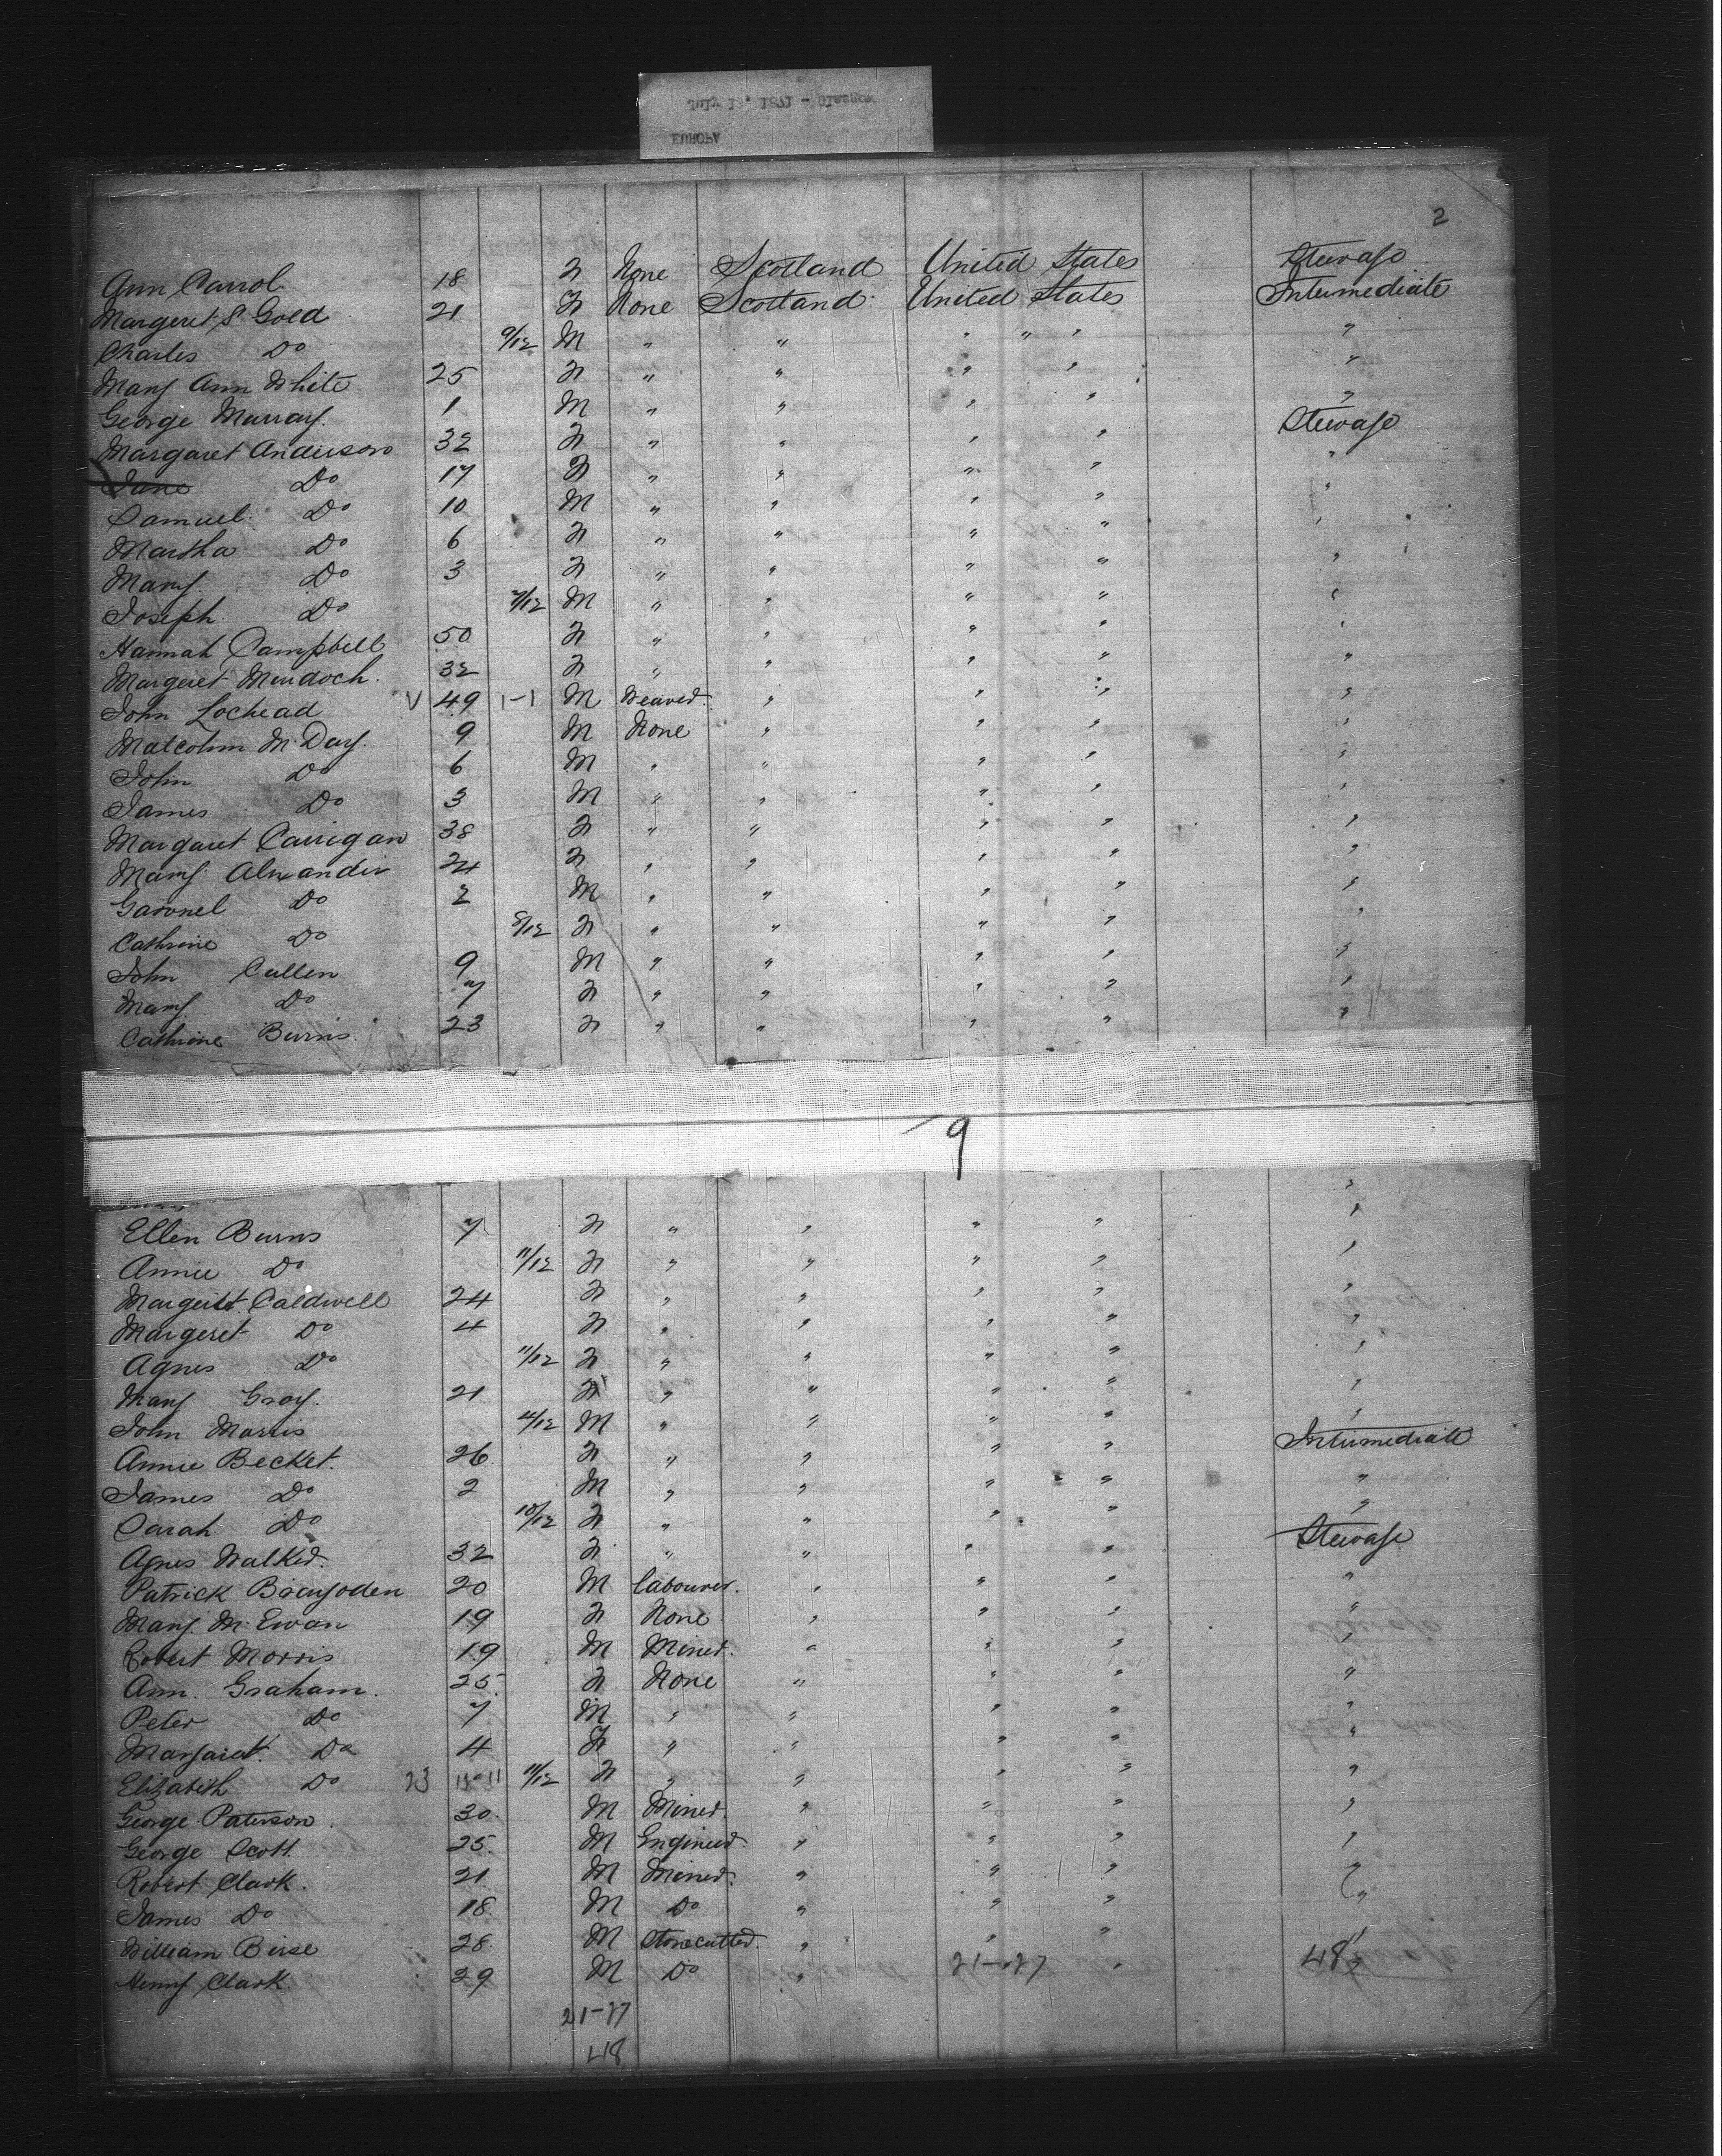 July 19, 1871 - Glasgow
EUROPA
2
Ann Carrol 18 F None Scotland United States Steerage
Margeret S Goed 21 F None Scotland United States Intermediate
Charles Do 9/12 M " " " " " "
Mary Ann White 25 F " " " " "
George Murray. 1 M " " " " "
Margaret Anderson 32 F " " " " Steerage
Jane Do 17 F " " " " "
Samuel Do 10 M " " " " "
Martha Do 6 F " " " " "
Mary Do 3 F " " " " "
Joseph Do 7/12 M " " " " "
Hannah Campbell 50 F " " " " "
Margeret Murdoch. 32 F " " " " "
John Lochead V 49 1-1 M Weaver. " " " "
Malcolm McDay. 9 M None " " " "
John Do 6 M " " " " "
James Do 3 M " " " " "
Margaret Carrigan 38 F " " " " "
Mary Alexander 24 F " " " " "
Do 2 M " " " " "
Cathrine Do 8/12 F " " " " "
John Cullen 9 M " " " " "
Mary Do 7 F " " " " "
Cathrine Burns. 23 F " " " " "
9
"
Ellen Burns 7 F " " " " "
Annie Do 11/12 F " " " " "
Margeret Caldwell 24 F " " " " "
Margeret Do 4 F " " " " "
Agnes Do 11/12 F " " " " "
Mary Gray. 21 F " " " " "
John Morris 4/12 M " " " " "
Annie Becket. 26 F " " " " Intermediate
James Do 2 M " " " " "
Sarah Do 10/12 F " " " " "
Agnes Walker. 32 F " " " " Steerage
Patrick 20 M labourer. " " " "
Mary McEwan 19 F None " " " "
Robert Morris 19 M Miner. " " " "
Ann. Graham. 25 F None " " " "
Peter Do 7 M " " " " "
Margaret. Do 4 F " " " " "
Elizabeth Do 23 11/12 F " " " " "
George Paterson. 30. M Miner. " " " "
George Scott 25. M Engineer. " " " "
Robert Clark. 21 M Miner. " " " "
James Do 18. M Do " " " "
William Birse 28. M Stonecutter. " " "
Henry Clark. 29 M Do " 21-27 " 48
21-27
48